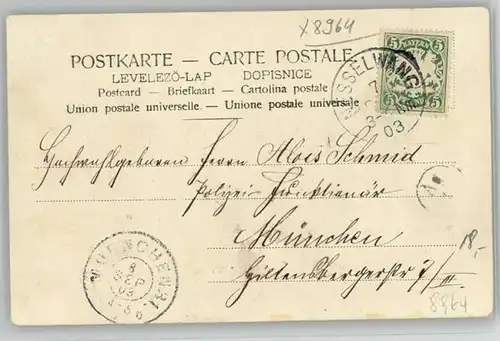 x8964
POSTKARTE — CARTE POSTALE
LEVELEZÖ-LAP DOPISNICE
Postcard — Briefkaart — Cartolina postale
Union postale universelle. - Unione postale universale
5 5
5 5
NESSELWANG
03
Hochwohlgeboren Herrn Alois Schmid
Polizei Funktionär
München
Hiltensbergerstr 7/III
MUENCHEN
8
SEP
03
18,-
8964